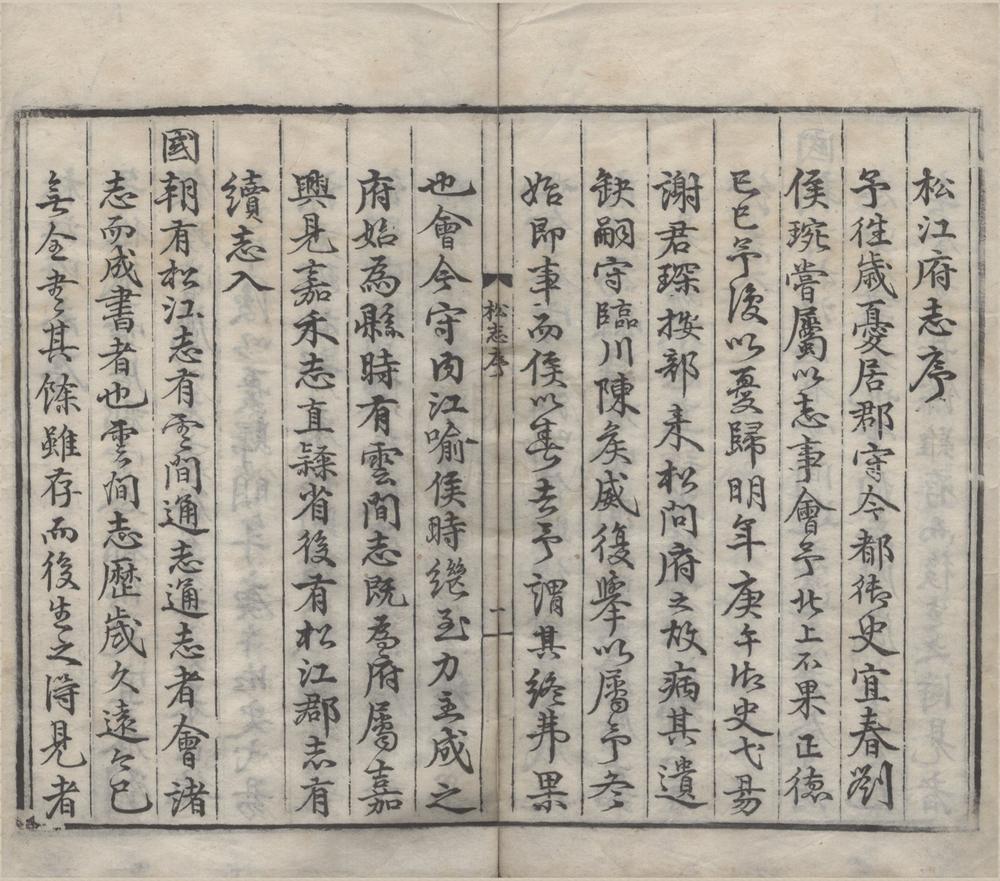 松江府志序
予往歲憂居郡守今都御史宜春劉
侯琬嘗屬以志事會予北上不果正德
己巳予復以憂歸明年庚午御史弋昜
謝君琛按部來松問府之故病其遺
缺嗣守臨川陳矦威復舉以屬予冬
始即事而侯以春去予謂其終弗果
松志序
一
也會今守內江喻侯時繼至力主成之
府始為縣時有雲間志既為府屬嘉
興見嘉禾志直隸省後有松江郡志有
續志入
國朝有松江志有雲間通志通志者會諸
志而成書者也雲間志歷歲久遠今已
無全書其餘雖存而後生之得見者